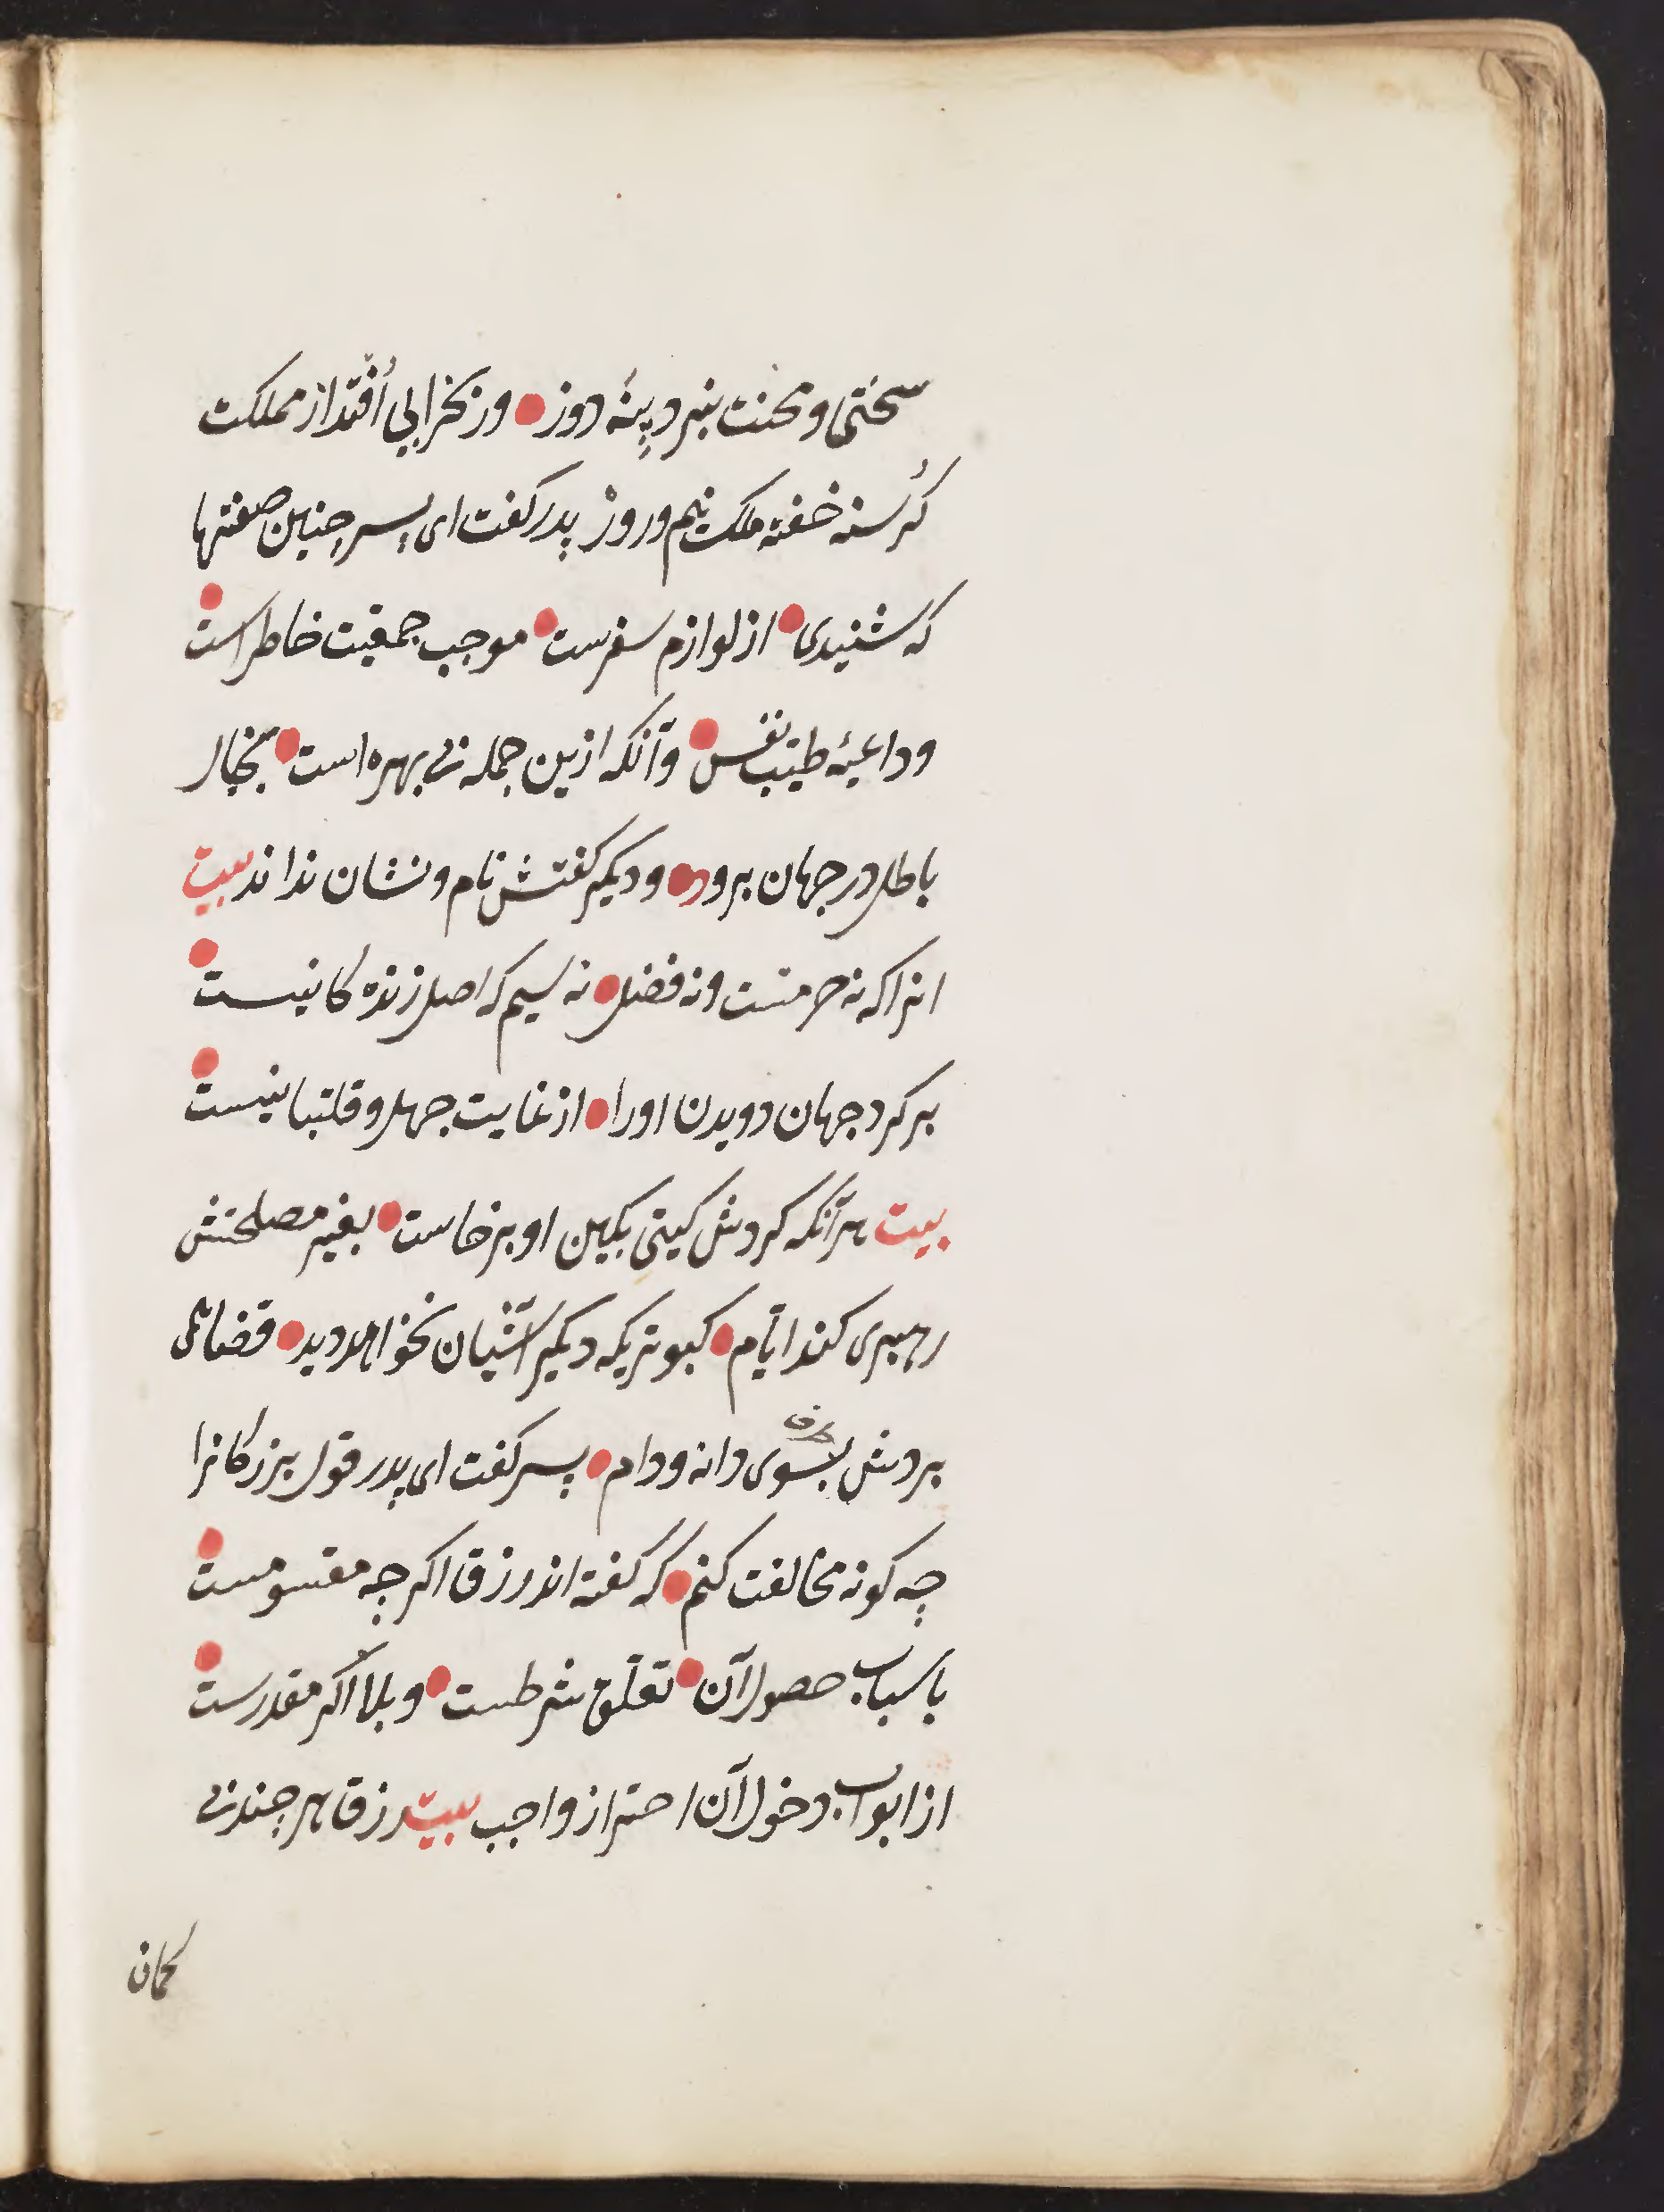 سختی و محنت نبرد پینهٔ دوز ● ور بخرابی اُفتد از مملکت
کُرسنه خفته ملک نیم روز پدر کفت ای پسر چنین صفتها
که شنیدی ● از لوازم سفرست ● موجب جمعیّت خاطر است ●
و داعیهٔ طیّب نفس ● وآنکه ازین جمله بی بهره است ● بخیال
باطل در جهان برود ● و دیکر کفتش نام و نشان نداند بیت
انرا که نه حرمتست و نه فضل ● نه سیم که اصل زنده کانیست ●
بر کرد جهان دویدن اورا ● از غایت جهل و قلتبانیست ●
بیت هرآنکه کردش کیتی بکین او برخاست ● بغیر مصلحتش
رهبری کند ایّام ● کبوتریکه دیکر آشیان نخواهد دید ● قضا همی
بردش بسوی دانه و دام ● پسر کفت ای پدر قول بزرکانرا
چه کونه مخالفت کنم ● که کفته اند رزق اکر چه مقسومست ●
باسباب حصول آن ● تعلّق شرطست ● و بلا اکر مقدرست ●
از ابواب دخول آن احتراز واجب بیت رزق هر چند بی
کمان